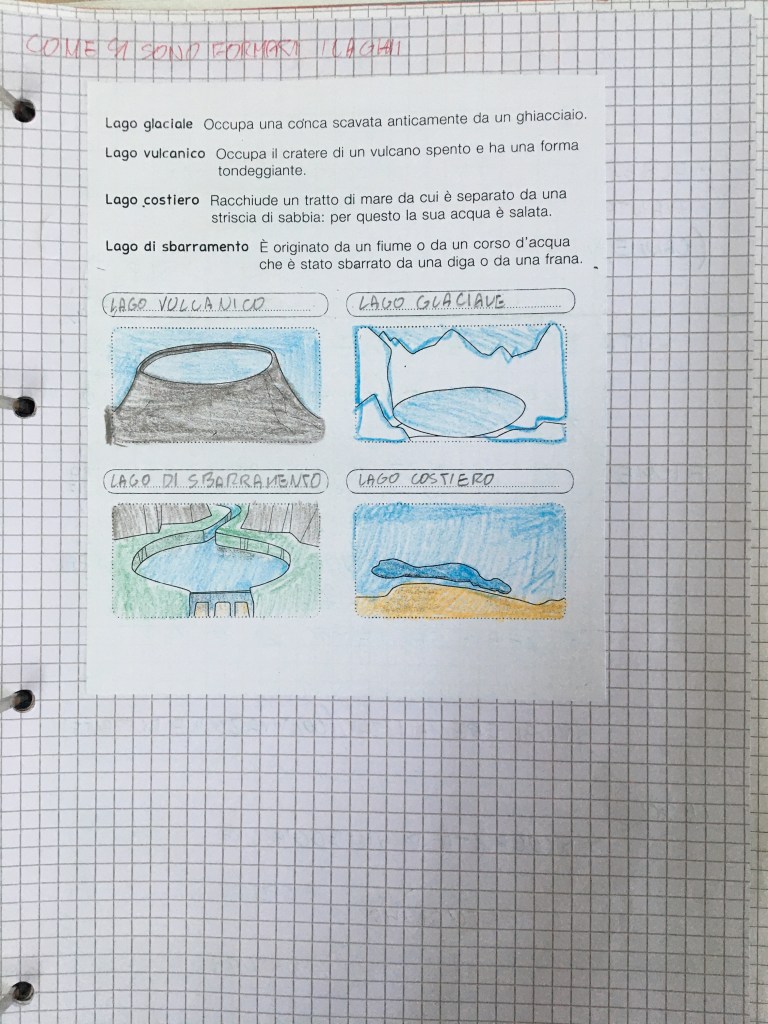 COME SI SONO FORMATI I LAGHI
Lago glaciale Occupa una conca scavata anticamente da un ghiacciaio.
Lago vulcanico Occupa il cratere di un vulcano spento e ha una forma
tondeggiante.
Lago costiero Racchiude un tratto di mare da cui è separato da una
striscia di sabbia: per questo la sua acqua è salata.
Lago di sbarramento È originato da un fiume o da un corso d'acqua
che è stato sbarrato da una diga o da una frana.
LAGO VULCANICO
LAGO GLACIALE
LAGO DI SBARRAMENTO
LAGO COSTIERO